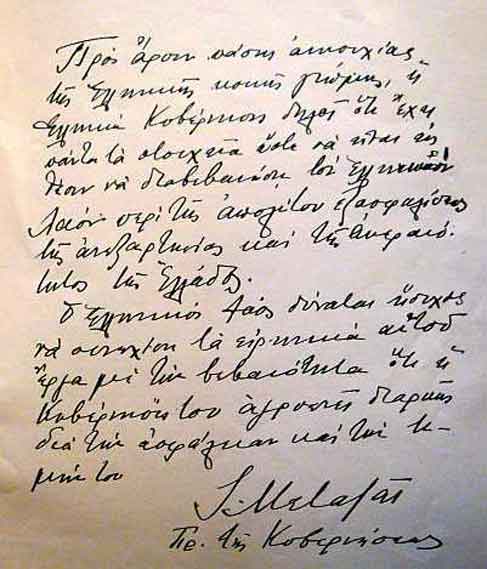 Πρὸς ἄρσιν πάσης ἀνησυχίας
τῆς Ἑλληνικῆς κοινῆς γνώμης, ἡ
Ἑλληνικὴ Κυβέρνησις δηλοῖ ὅτι ἔχει
πάντα τὰ στοιχεῖα ὥστε νὰ εἶναι εἰς
θέσιν νὰ διαβεβαιώσῃ τὸν Ἑλληνικὸν
Λαὸν περὶ τῆς ἀπολύτου ἐξασφαλίσεως
τῆς ἀνεξαρτησίας καὶ τῆς ἀκεραιό-
τητος τῆς Ἑλλάδος.
Ὁ Ἑλληνικὸς Λαὸς δύναται ἥσυχος
νὰ συνεχίσῃ τὰ εἰρηνικὰ αὐτοῦ
ἔργα μὲ τὴν βεβαιότητα ὅτι ἡ
Κυβέρνησίς του ἀγρυπνεῖ διαρκῶς
διὰ τὴν ἀσφάλειαν καὶ τὴν τι-
μήν του
Ι. Μεταξᾶς
Πρ. τῆς Κυβερνήσεως